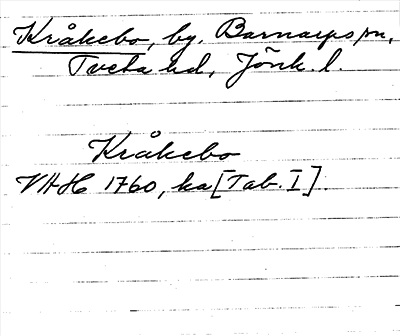 Kråkebo, by, Barnarps sn,
Tveta hd, Jönk. l.
Kråkebo
VAH 1760, ka [Tab. I].